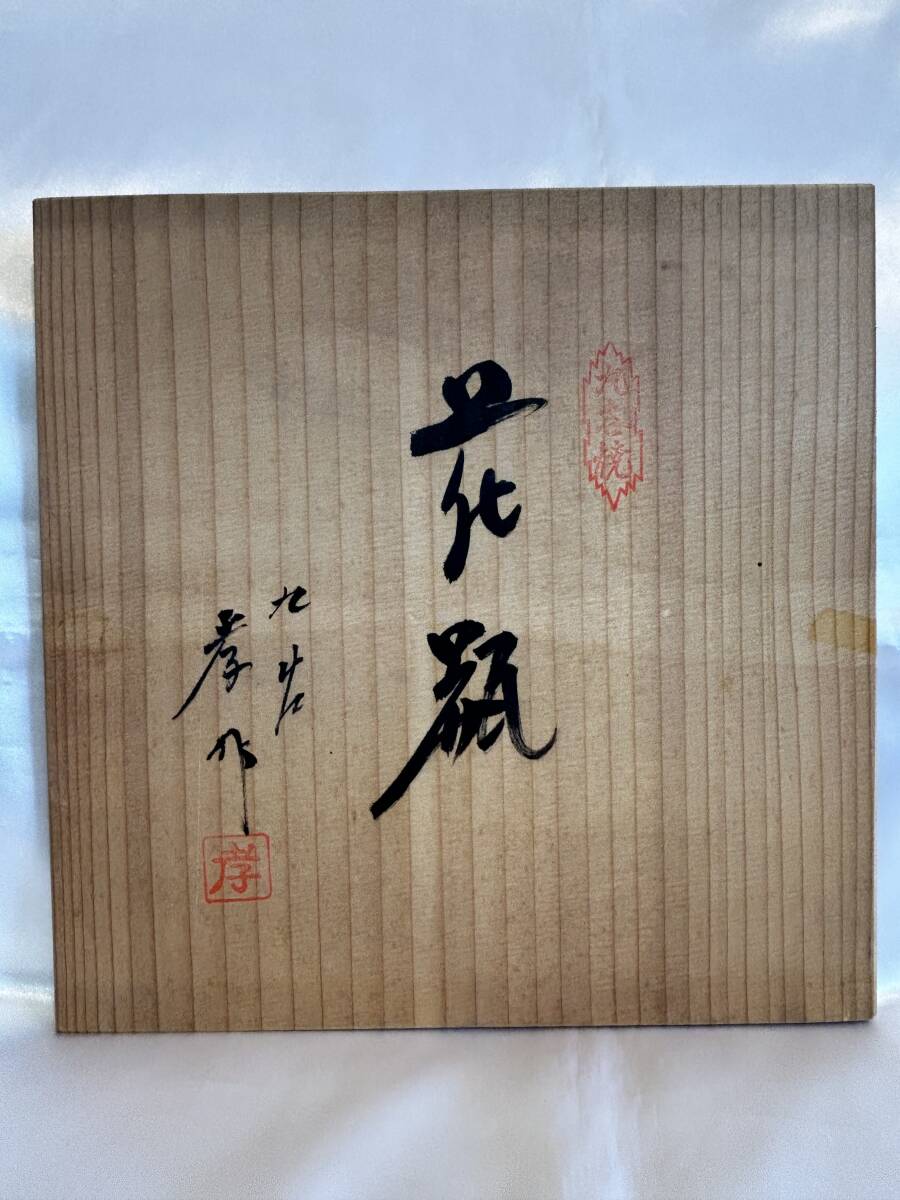 九谷焼
花瓶
九谷
孝作
孝